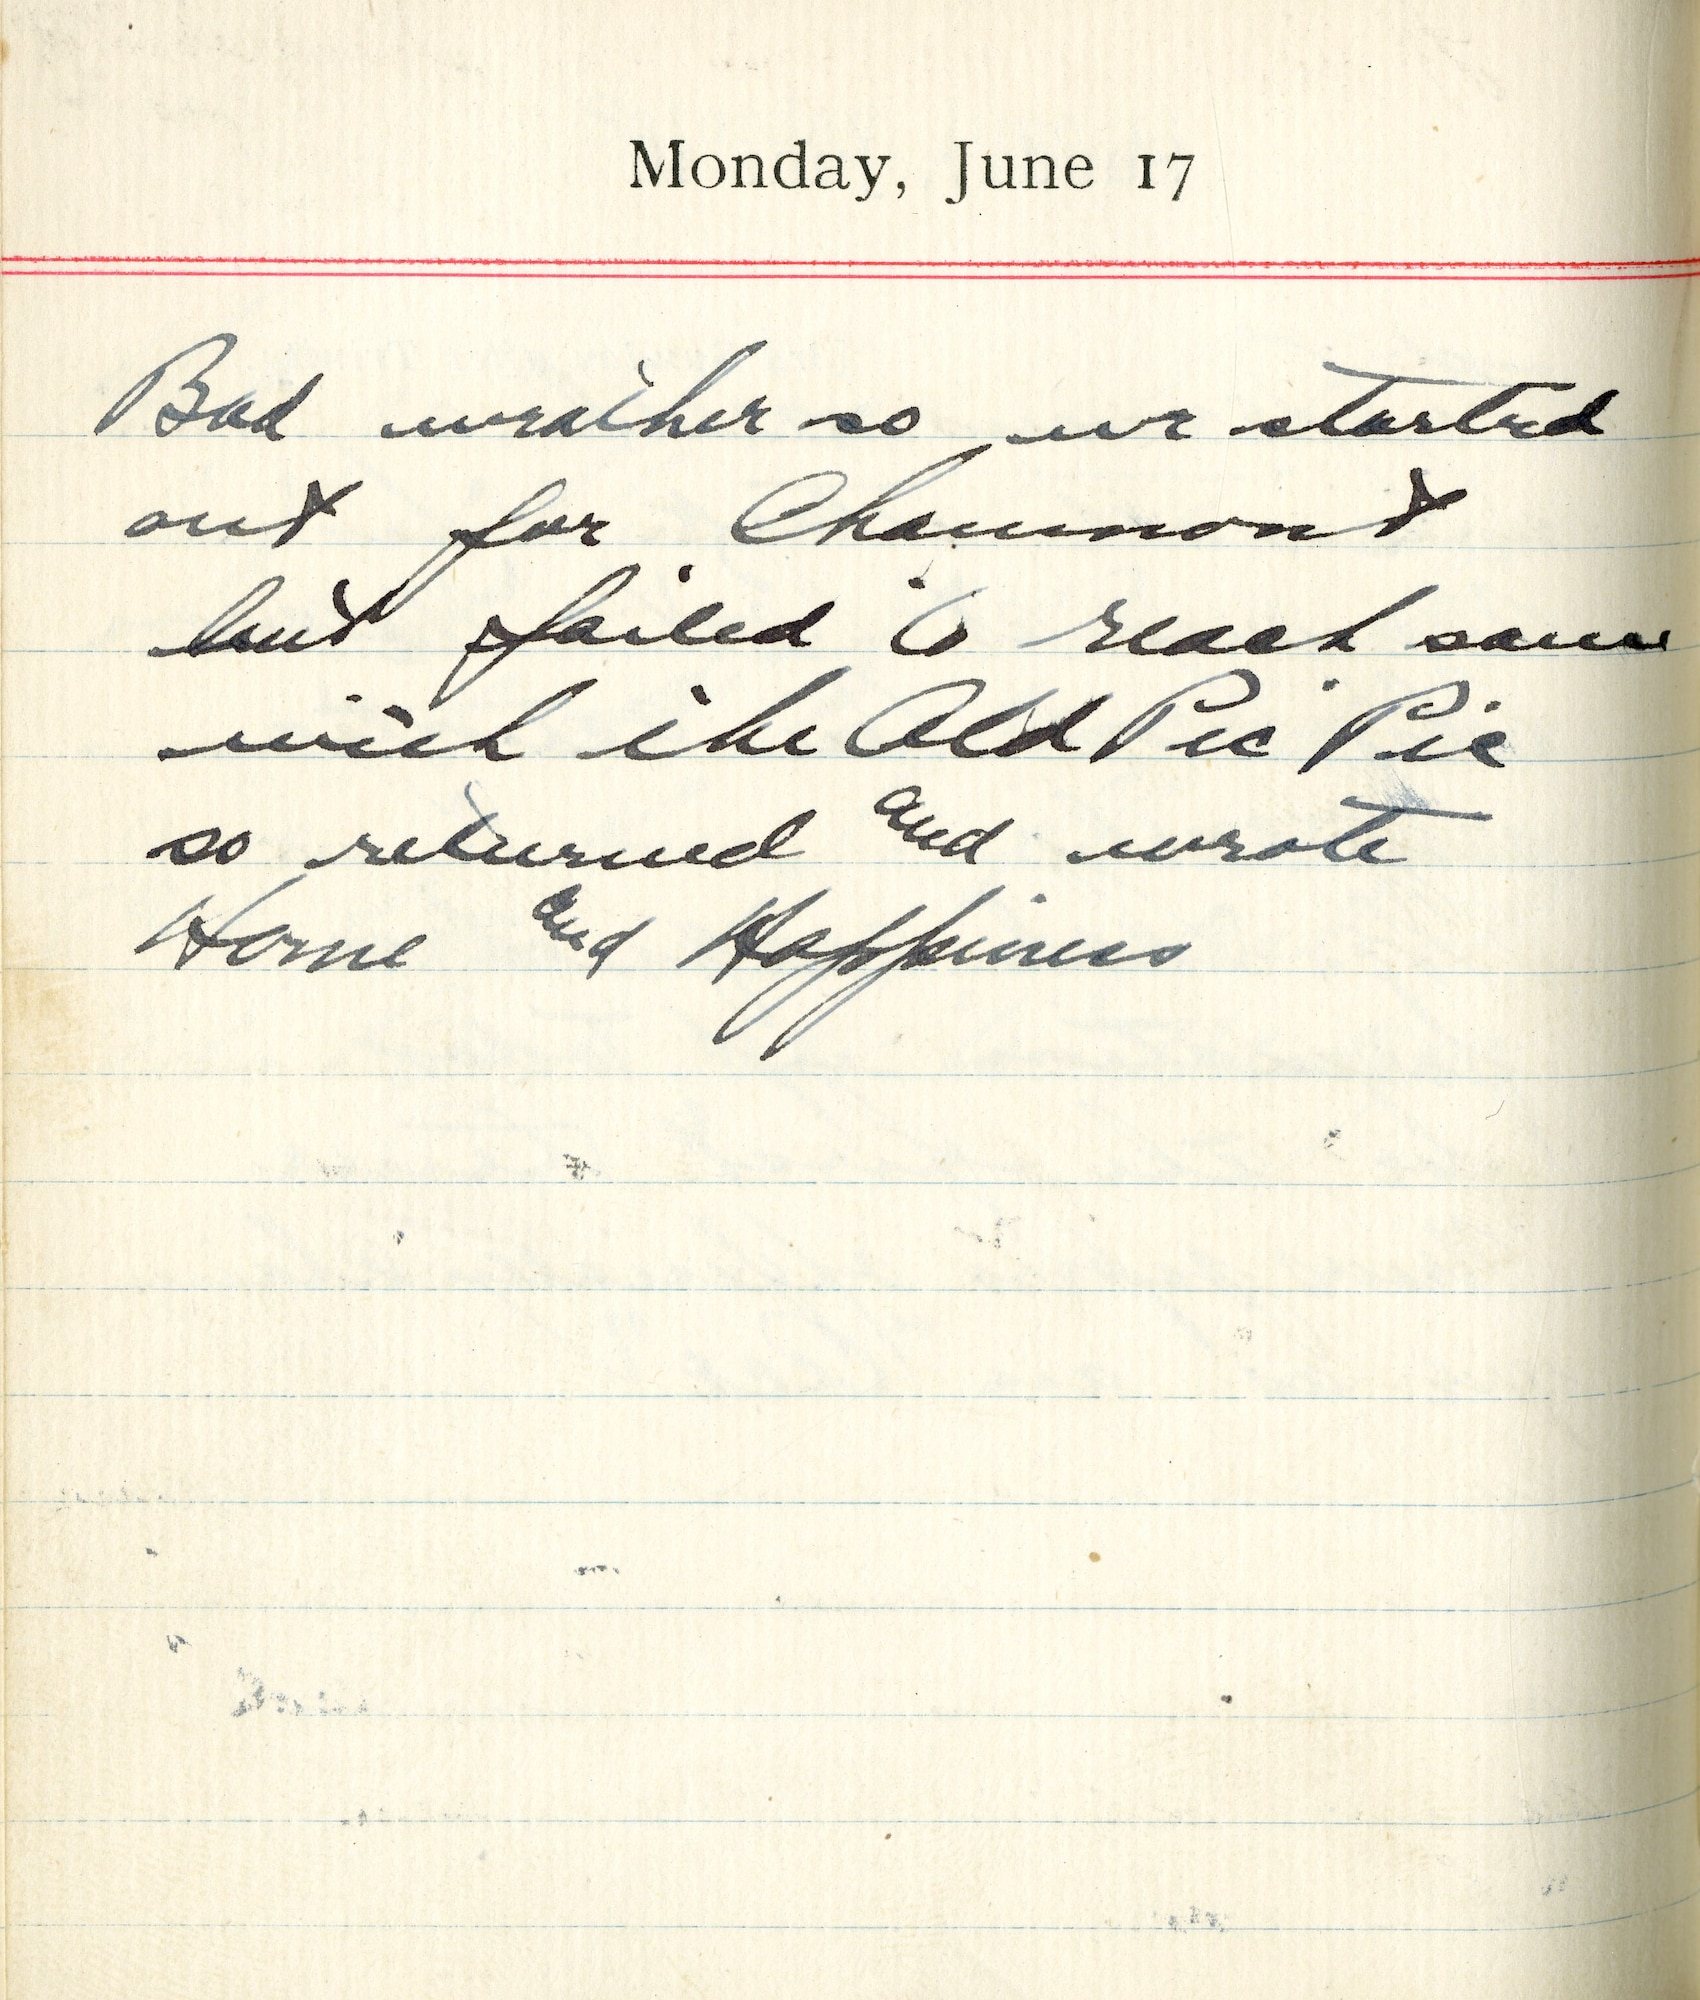 Monday, June 17
Bad weather so we started
out for Chaumont
but failed to reach same
with the Old Pic Pic
so returned and wrote
Home and Happiness